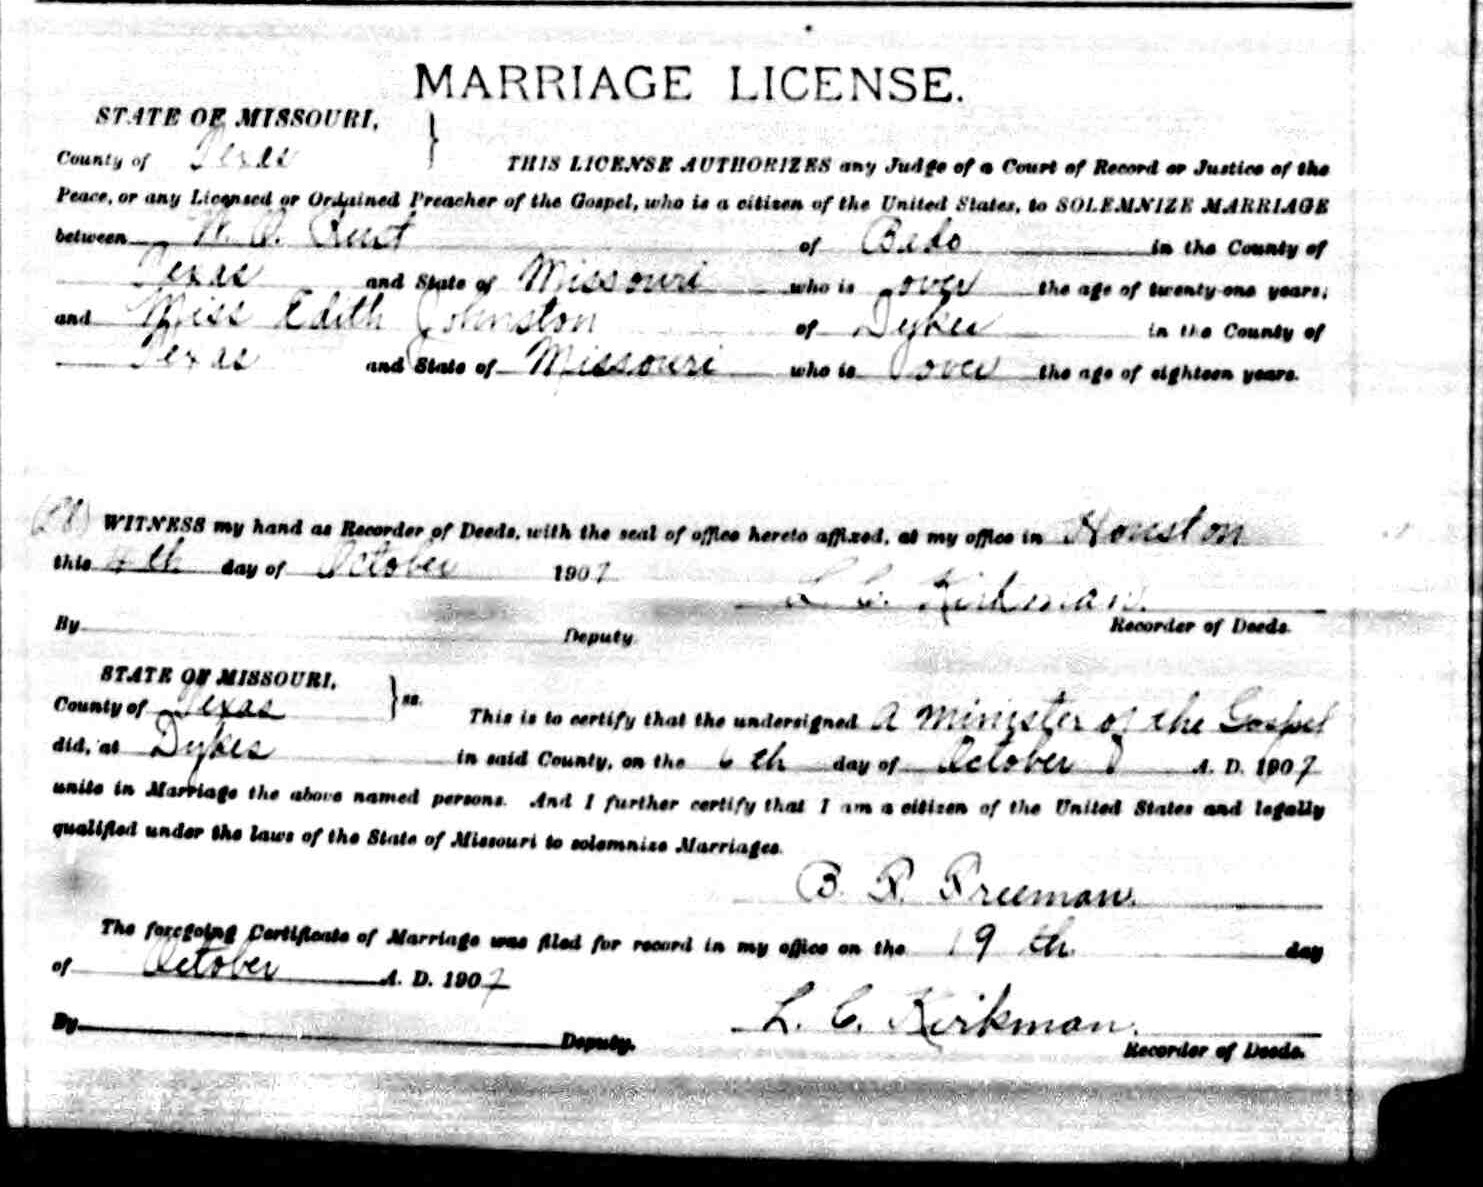 MARRIAGE LICENSE.
STATE OF MISSOURI, }
County of Texas THIS LICENSE AUTHORIZES any Judge of a Court of Record or Justice of the
Peace, or any Licensed or Ordained Preacher of the Gospel, who is a citizen of the United States, to SOLEMNIZE MARRIAGE
between W. O. Rust of Bado in the County of
Texas and State of Missouri who is over the age of twenty-one years;
and Miss Edith Johnston of Dykes in the County of
Texas and State of Missouri who is over the age of eighteen years.
WITNESS my hand as Recorder of Deeds, with the seal of office hereto affixed, at my office in Houston
this 4th day of October 1907
L. C. Kirkman.
Recorder of Deeds.
By Deputy
STATE OF MISSOURI, } ss.
County of Texas This is to certify that the undersigned a minister of the Gospel
did, at Dykes in said County, on the 6th day of October A. D. 1907
unite in Marriage the above named persons. And I further certify that I am a citizen of the United States and legally
qualified under the laws of the State of Missouri to solemnize Marriages.
B. R. Freeman.
The foregoing Certificate of Marriage was filed for record in my office on the 19th day
of October A. D. 1907
L. C. Kirkman.
By Deputy. Recorder of Deeds.